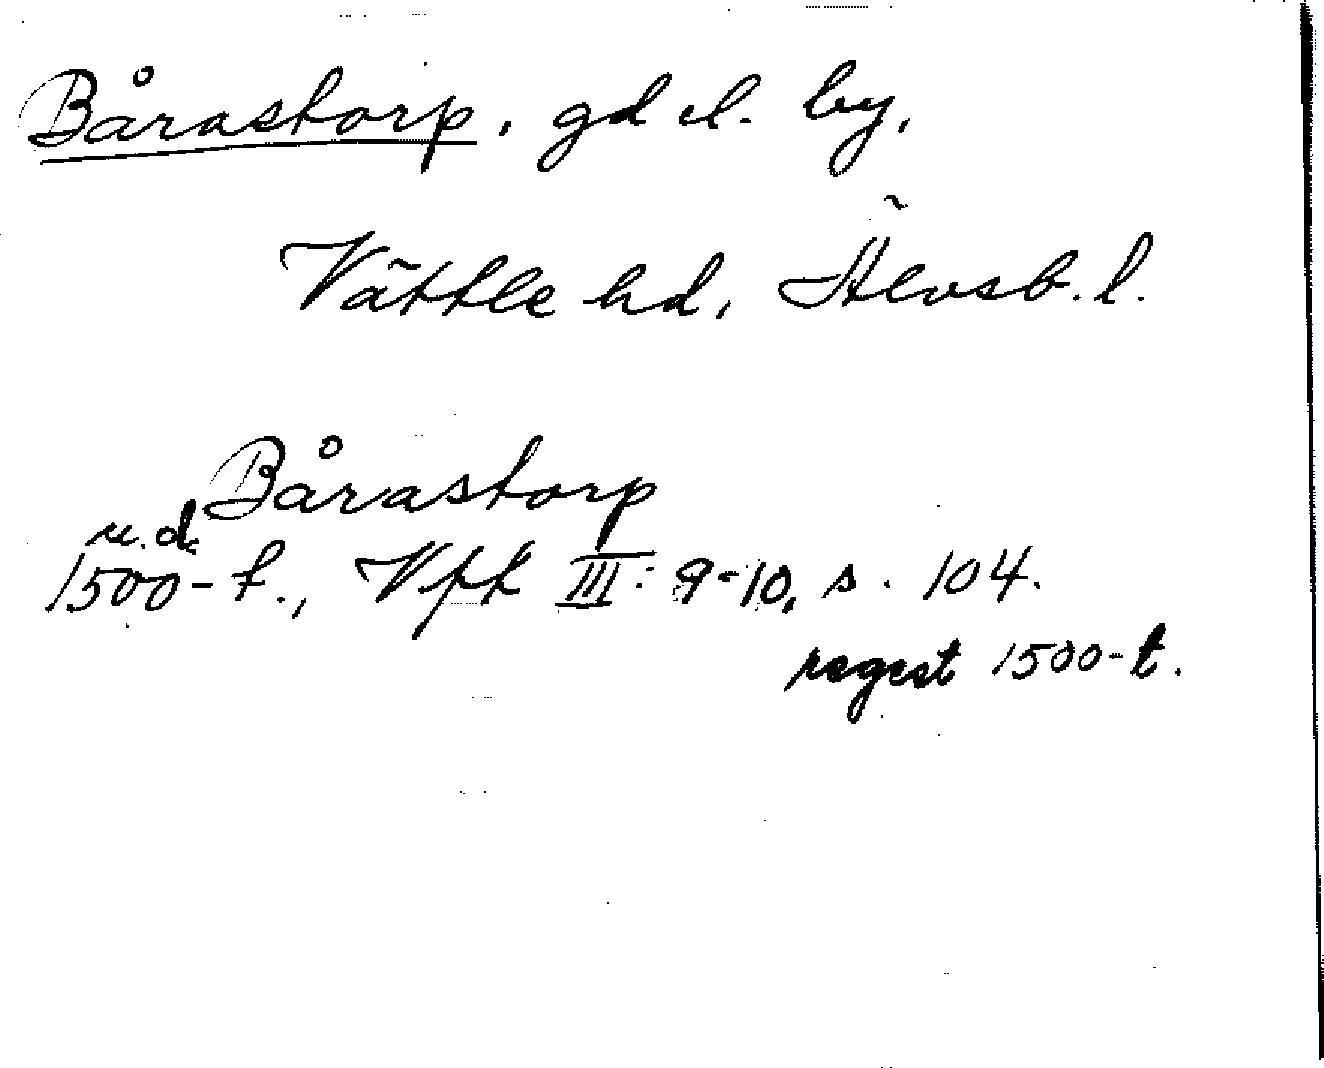 Bårastorp, gd el. by,
Vättle hd, Älvsb. l.
Bårastorp
u.d.
1500-t., Vfft III: 9-10, s. 104.
regest 1500-t.